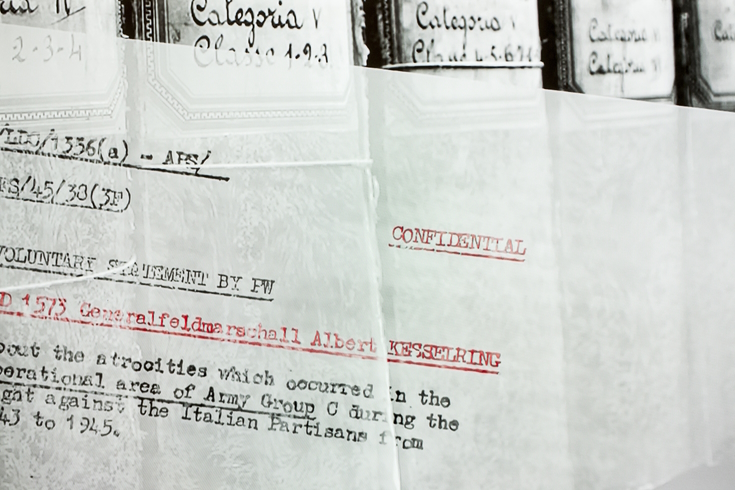 IV
Categoria V
Categoria V
Categoria
2-3-4
Classe 1-2-3
Classe 4-5-6
Categoria VI
/1336(a) - APS/
/45/38(3F)
CONFIDENTIAL
VOLUNTARY STATEMENT BY PW
D 1573 Generalfeldmarschall Albert KESSELRING
bout the atrocities which occurred in the
perational area of Army Group C during the
ght against the Italian Partisans from
43 to 1945.